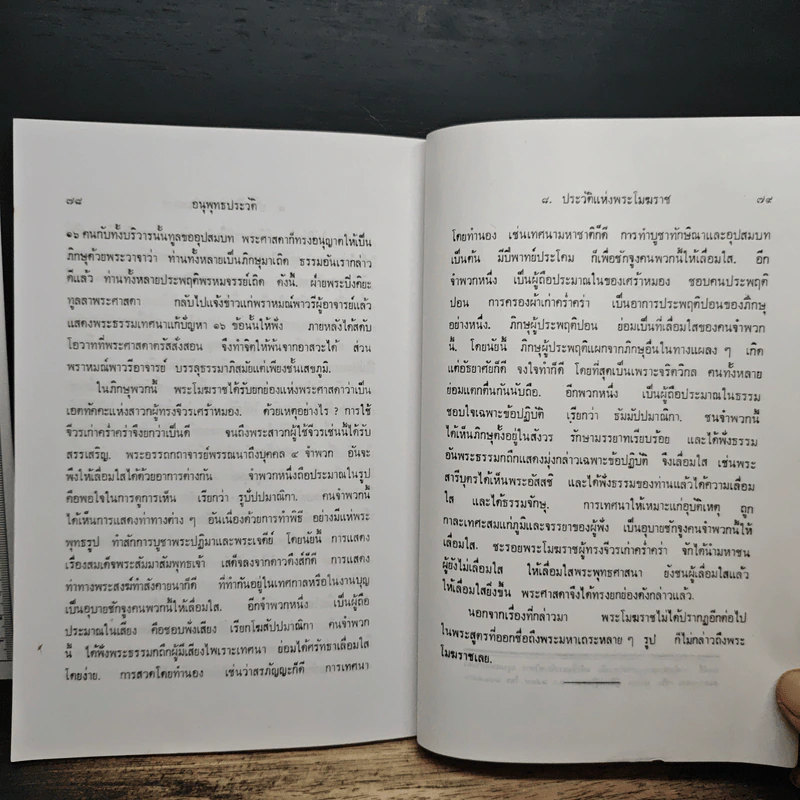 ๗๘ อนุพุทธประวัติ
๑๖ คนกับทั้งบริวารนั้นทูลขออุปสมบท พระศาสดาก็ทรงอนุญาตให้เป็น
ภิกษุด้วยพระวาจาว่า ท่านทั้งหลายเป็นภิกษุมาเถิด ธรรมอันเรากล่าว
ดีแล้ว ท่านทั้งหลายประพฤติพรหมจรรย์เถิด ดังนี้. ฝ่ายพระปิงคิยะ
ทูลลาพระศาสดา กลับไปแจ้งข่าวแก่พราหมณ์พาวรีผู้อาจารย์แล้ว
แสดงพระธรรมเทศนาแก้ปัญหา ๑๖ ข้อนั้นให้ฟัง ภายหลังได้สดับ
โอวาทที่พระศาสดาตรัสสั่งสอน จึงทำจิตให้พ้นจากอาสวะได้ ส่วน
พราหมณ์พาวรีอาจารย์ บรรลุธรรมาภิสมัยแต่เพียงชั้นเสขภูมิ.
ในภิกษุพวกนี้ พระโมฆราชได้รับยกย่องแห่งพระศาสดาว่าเป็น
เอตทัคคะแห่งสาวกผู้ทรงจีวรเศร้าหมอง. ด้วยเหตุอย่างไร ? การใช้
จีวรเก่าคร่ำคร่าจึงยกว่าเป็นดี จนถึงพระสาวกผู้ใช้จีวรเช่นนี้ได้รับ
สรรเสริญ. พระอรรถกถาจารย์พรรณนาถึงบุคคล ๔ จำพวก อันจะ
พึงให้เลื่อมใสได้ด้วยอาการต่างกัน จำพวกหนึ่งถือประมาณในรูป
คือพอใจในการดูการเห็น เรียกว่า รูปัปปมาณิกา. คนจำพวกนี้
ได้เห็นการแสดงท่าทางต่าง ๆ อันเนื่องด้วยการทำพิธี อย่างมีแห่พระ
พุทธรูป ทำสักการบูชาพระปฏิมาและพระเจดีย์ โดยนัยนี้ การแสดง
เรื่องสมเด็จพระสัมมาสัมพุทธเจ้า เสด็จลงจากดาวดึงส์ก็ดี การแสดง
ท่าทางพระสงฆ์ทำสังคายนาก็ดี ที่ทำกันอยู่ในเทศกาลหรือในงานบุญ
เป็นอุบายชักจูงคนพวกนี้ให้เลื่อมใส. อีกจำพวกหนึ่ง เป็นผู้ถือ
ประมาณในเสียง คือชอบฟังเสียง เรียกโฆสัปปมาณิกา คนจำพวก
นี้ ได้ฟังพระธรรมกถึกผู้มีเสียงไพเราะเทศนา ย่อมได้ศรัทธาเลื่อมใส
โดยง่าย. การสวดโดยทำนอง เช่นว่าสรภัญญะก็ดี การเทศนา
๘. ประวัติแห่งพระโมฆราช ๗๙
โดยทำนอง เช่นเทศนามหาชาติก็ดี การทำบูชาทักษิณาและอุปสมบท
เป็นต้น มีปี่พาทย์ประโคม ก็เพื่อชักจูงคนพวกนี้ให้เลื่อมใส. อีก
จำพวกหนึ่ง เป็นผู้ถือประมาณในของเศร้าหมอง ชอบคนประพฤติ
ปอน การครองผ้าเก่าคร่ำคร่า เป็นอาการประพฤติปอนของภิกษุ
อย่างหนึ่ง. ภิกษุผู้ประพฤติปอน ย่อมเป็นที่เลื่อมใสของคนจำพวก
นี้. โดยนัยนี้ ภิกษุผู้ประพฤติแผกจากภิกษุอื่นในทางแผลง ๆ เกิด
แต่อัธยาศัยก็ดี จงใจทำก็ดี โดยที่สุดเป็นเพราะจริตวิกล คนทั้งหลาย
ย่อมแตกตื่นกันนับถือ. อีกพวกหนึ่ง เป็นผู้ถือประมาณในธรรม
ชอบใจเฉพาะข้อปฏิบัติ เรียกว่า ธัมมัปปมาณิกา. ชนจำพวกนี้
ได้เห็นภิกษุตั้งอยู่ในสังวร รักษามรรยาทเรียบร้อย และได้ฟังธรรม
อันพระธรรมกถึกแสดงมุ่งกล่าวเฉพาะข้อปฏิบัติ จึงเลื่อมใส เช่นพระ
สารีบุตรได้เห็นพระอัสสชิ และได้ฟังธรรมของท่านแล้วได้ความเลื่อม
ใส และได้ธรรมจักษุ. การเทศนาให้เหมาะแก่อุบัติเหตุ ถูก
กาละเทศะสมแก่ภูมิและจรรยาของผู้ฟัง เป็นอุบายชักจูงคนจำพวกนี้ให้
เลื่อมใส. ชะรอยพระโมฆราชผู้ทรงจีวรเก่าคร่ำคร่า จักได้นำมหาชน
ผู้ยังไม่เลื่อมใส ให้เลื่อมใสพระพุทธศาสนา ยังชนผู้เลื่อมใสแล้ว
ให้เลื่อมใสยิ่งขึ้น พระศาสดาจึงได้ทรงยกย่องดังกล่าวแล้ว.
นอกจากเรื่องที่กล่าวมา พระโมฆราชไม่ได้ปรากฏอีกต่อไป
ในพระสูตรที่ออกชื่อถึงพระมหาเถระหลาย ๆ รูป ก็ไม่กล่าวถึงพระ
โมฆราชเลย.